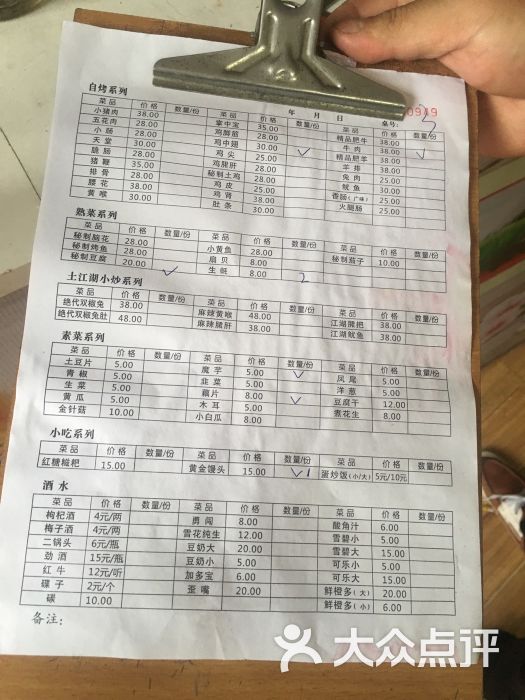 自烤系列
年 月 日 0949
桌号: 5
菜品 价格 数量/份 菜品 价格 数量/份 菜品 价格 数量/份
小猪肉 38.00 掌中宝 35.00 精品肥牛 38.00
五花肉 28.00 鸡脚筋 28.00 牛肉 38.00 ✓
小肠 28.00 鸡中翅 30.00 ✓ 精品肥羊 38.00
天堂 30.00 鸡尖 25.00 羊排
脆肠 28.00 鸡腿肝 28.00 兔肉 25.00
猪鞭 35.00 秘制土鸡 28.00 鱿鱼 30.00
排骨 28.00 鸡皮 25.00 香肠(广味) 25.00
腰花 38.00 鸡肾 38.00 火腿肠 25.00
黄喉 30.00 肚条 30.00
熟菜系列
菜品 价格 数量/份 菜品 价格 数量/份 菜品 价格 数量/份
秘制脑花 28.00 小黄鱼 28.00 秘制茄子 10.00
秘制烤鱼 28.00 扇贝 8.00
秘制豆腐 20.00 ✓ 生蚝 8.00 2
土江湖小炒系列
菜品 价格 数量/份 菜品 价格 数量/份 菜品 价格 数量/份
绝代双椒兔 38.00 麻辣黄喉 48.00 江湖脆肥 38.00
绝代双椒兔肚 48.00 麻辣猪肝 38.00 江湖鱿鱼 38.00
素菜系列
菜品 价格 数量/份 菜品 价格 数量/份 菜品 价格 数量/份
土豆片 5.00 魔芋 5.00 ✓ 凤尾 5.00
青椒 5.00 韭菜 5.00 洋葱 5.00
生菜 5.00 藕片 8.00 ✓ 豆腐干 12.00
黄瓜 5.00 木耳 5.00 煮花生 8.00
金针菇 10.00 小白瓜 8.00
小吃系列
菜品 价格 数量/份 菜品 价格 数量/份 菜品 价格 数量/份
红糖糍粑 15.00 黄金馒头 15.00 ✓1 蛋炒饭(小/大) 5元/10元
酒水
菜品 价格 数量/份 菜品 价格 数量/份 菜品 价格 数量/份
枸杞酒 4元/两 勇闯 8.00 酸角汁 6.00
梅子酒 4元/两 雪花纯生 12.00 雪碧小 5.00
二锅头 6元/瓶 豆奶大 20.00 雪碧大 15.00
劲酒 15元/瓶 豆奶小 5.00 可乐小 5.00
红牛 12元/听 加多宝 6.00 可乐大 15.00
碟子 2元/个 歪嘴 20.00 鲜橙多(大) 20.00
碳 10.00 鲜橙多(小) 6.00
备注:
大众点评